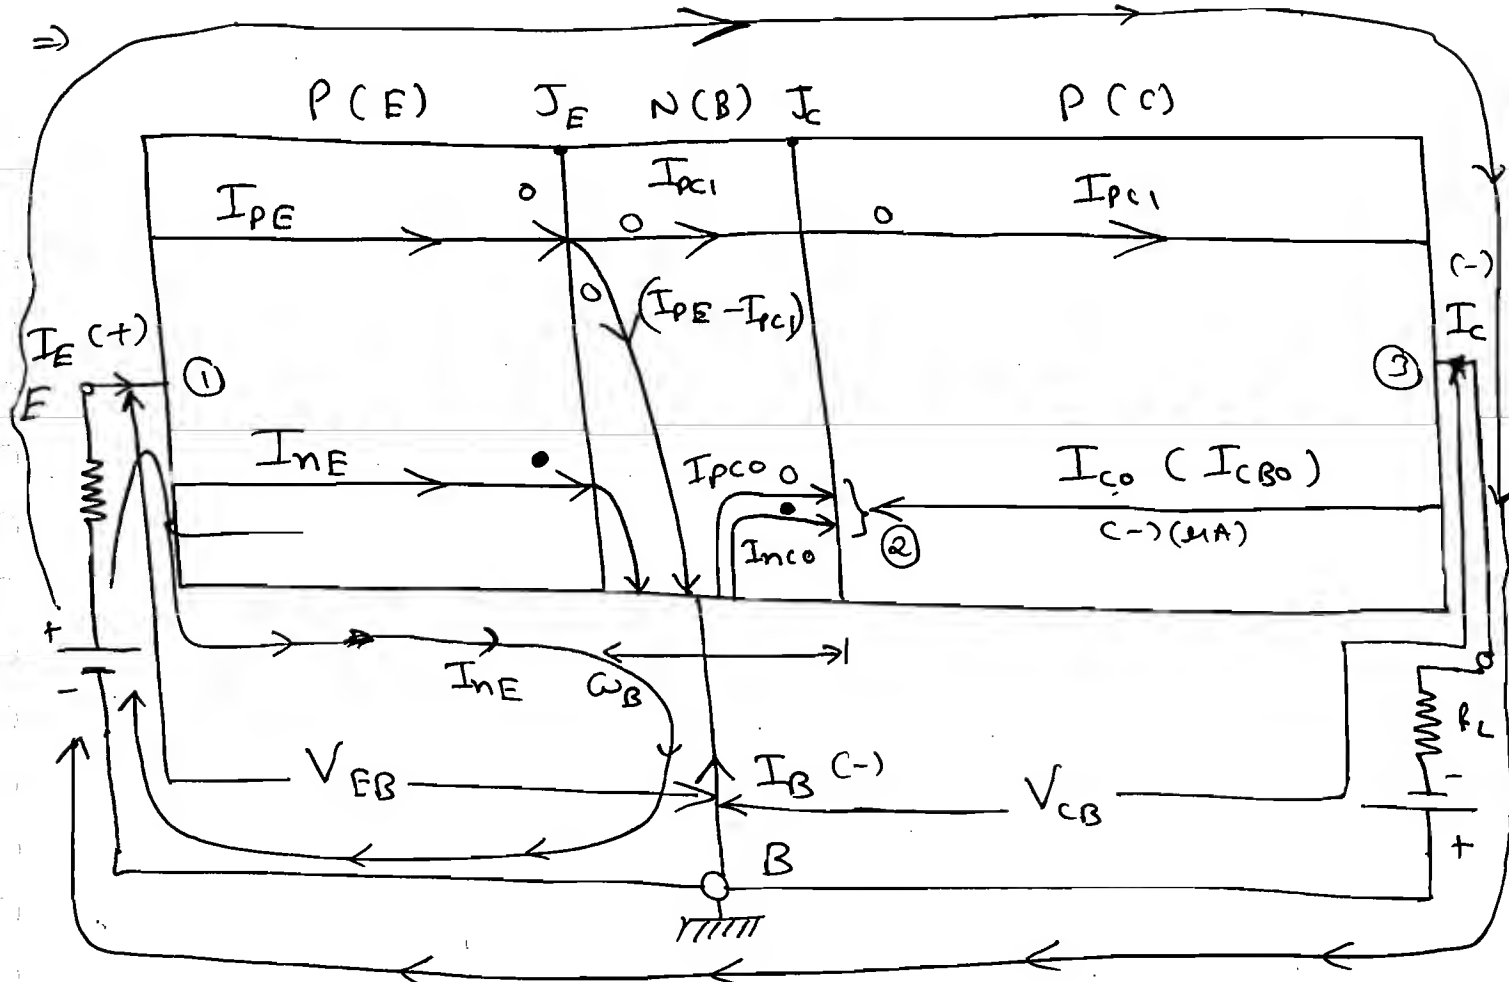 ⇒
P(E) J_E N(B) J_C P(C)
I_PE I_PC1 I_PC1
(I_PE - I_PC1)
I_E (+) ① (-) I_C ③
E
I_nE I_PCO I_CO (I_CBO)
I_nCO ② (-)(μA)
+
-
I_nE ω_B
R_L
V_EB I_B (-) V_CB -
B +